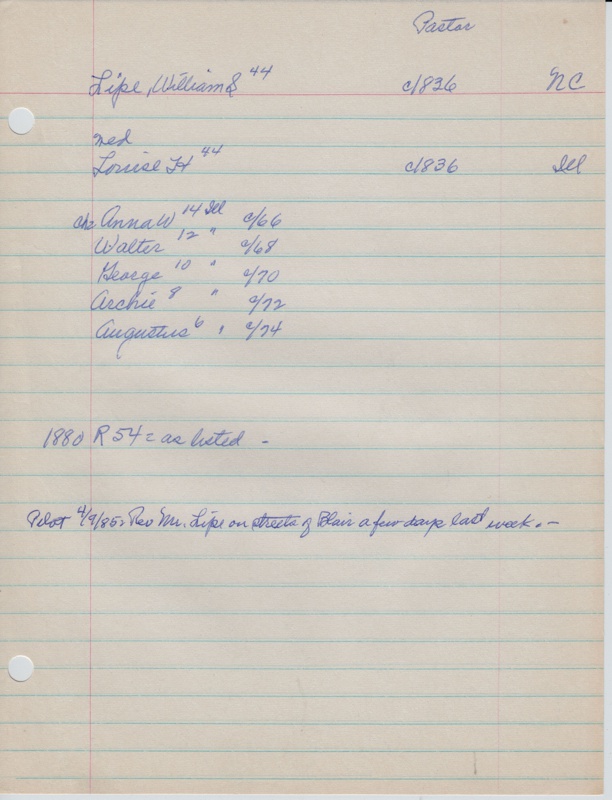 Pastor
Lipe, William S 44 c/1836 NC
med
Louise H 44 c/1836 Ill
chr Anna W 14 Ill c/66
Walter 12 " c/68
George 10 " c/70
Archie 8 " c/72
Augustus 6 " c/74
1880 R 54 = as listed -
Pilot 4/9/85: Rev Mr. Lipe on streets of Blair a few days last week. -